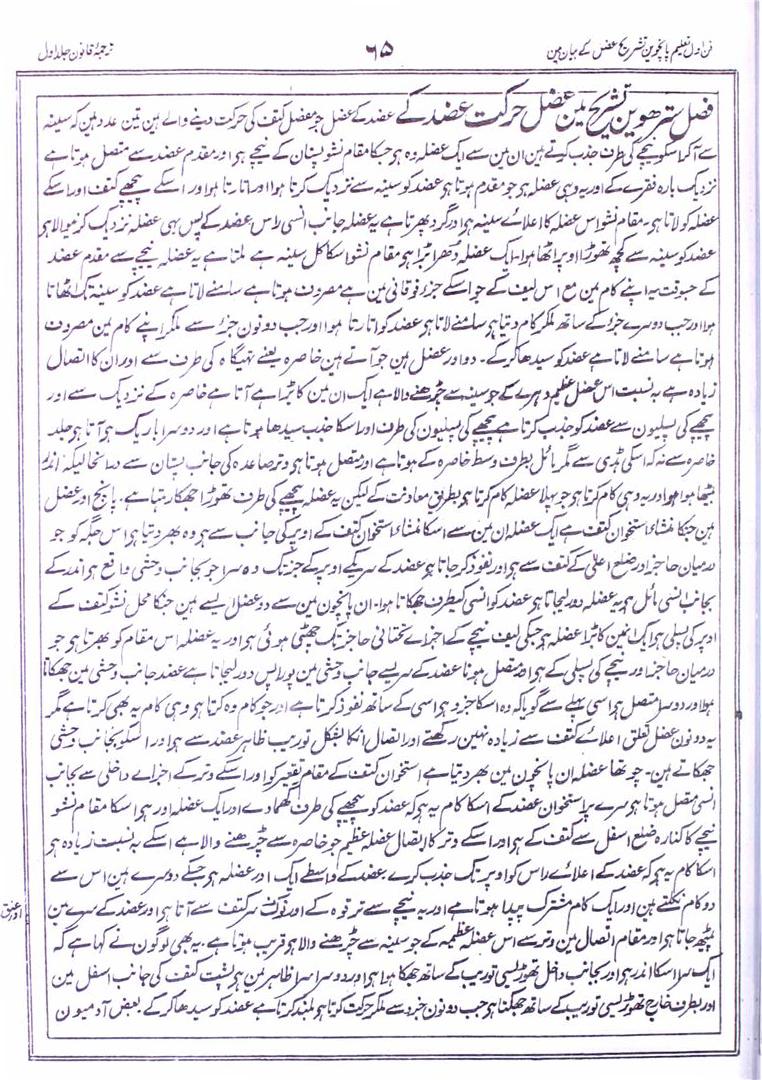 ترجمۂ قانون جلد اول
۶۵
فن اول تعلیم پانچوین تشریح عضل کے بیان مین
فصل سترھوین تشریح مین عضل حرکت عضد کے عضد کے عضل جو مفصل کتف کی حرکت دینے والے ہین تین عدد ہین کہ سینہ
سے آکر اسکو نیچے کی طرف جذب کرتے ہین ان مین سے ایک عضلہ وہ ہو جسکا مقام نشو پستان کے نیچے ہو اور مقدم عضد سے متصل ہوتا ہے
نزدیک بارہ فقرے کے اور یہ وہی عضلہ ہو جو مقدم ہوتا ہو عضد کو سینہ سے نزدیک کرتا ہوا اور اتارتا ہوا اور اسکے پیچھے کتف اور اسکے
عضلہ کو لاتا ہو۔ مقام نشو اس عضلہ کا اعلائے سینہ ہو اور گرد پھرتا ہے یہ عضلہ جانب انسی راس عضد کے پس یہی عضلہ نزدیک کرنیوالا ہو
عضد کو سینہ سے کچھ تھوڑا اوپر اٹھا ہوا۔ ایک عضلہ دھرا بڑا ہو مقام نشو اسکا کل سینہ ہے ملتا ہے یہ عضلہ نیچے سے مقدم عضد
کے جسوقت یہ اپنے کام مین مع اس لیف کے جو اسکے جزء فوقانی مین ہے مصروف ہوتا ہے سامنے لاتا ہے عضد کو سینہ تک اٹھاتا
ہوا اور جب دوسرے جزء کے ساتھ ملکر کام دیتا ہو سامنے لاتا ہو عضد کو اتارتا ہوا اور جب دونون جزء سے ملکر اپنے کام مین مصروف
ہوتا ہے سامنے لاتا ہے عضد کو سیدھا کرکے۔ دو اور عضل ہین جو آتے ہین خاصرہ یعنے تہیگاہ کی طرف سے اور ان کا اتصال
زیادہ ہے بہ نسبت اس عضل عظیم دہرے کے جو سینہ سے چڑھنے والا ہے ایک ان مین کا بڑا ہے آتا ہے خاصرہ کے نزدیک سے اور
پیچھے کی پسلیون سے عضد کو جذب کرتا ہے پیچھے کی پسلیون کی طرف اور اسکا جذب سیدھا ہوتا ہے اور دوسرا باریک ہو آتا ہو جلد
خاصرہ سے نہ کہ اسکی ہڈی سے مگر مائل بطرف وسط خاصرہ کے ہوتا ہے اور متصل ہوتا ہو وتر صاعدہ کی جانب پستان سے درانحالیکہ اندر
بیٹھا ہوا ہو اور یہ وہی کام کرتا ہو جو پہلا عضلہ کام کرتا ہو بطریق معاونت کے لیکن یہ عضلہ پیچھے کی طرف تھوڑا جھکا رہتا ہے۔ پانچ اور عضل
ہین جنکا منشاء استخوان کتف ہے ایک عضلہ ان مین سے اسکا منشاء استخوان کتف کے اوپر کی جانب سے ہو وہ بھر دیتا ہو اس جگہ کو جو
درمیان حاجز اور ضلع اعلی کے کتف سے ہو اور نفوذ کر جاتا ہو عضد کے سر کے اوپر کے جز تک دوسرا جو بجانب وحشی واقع ہو اندر کے
بجانب انسی مائل ہو یہ عضلہ دور لیجاتا ہو عضد کو انسی کیطرف جھکاتا ہوا۔ ان پانچون مین سے دو عضل ایسے ہین جنکا محل نشو کتف کے
اوپر کی پسلی ہو ایک انمین کا بڑا عضلہ ہو جسکی لیف نیچے کے اجزاے تحتانی حاجز تک چھٹی ہوئی ہو اور یہ عضلہ اس مقام کو بھرتا ہو جو
درمیان حاجز اور نیچے کی پسلی کے ہو اور متصل ہوتا عضد کے سر سے جانب وحشی مین پورا پس دور لیجاتا ہے عضد جانب وحشی مین جھکاتا
ہوا اور دوسرا متصل ہو اسی پہلے سے گویا کہ وہ اسکا جزو ہو اسی کے ساتھ نفوذ کرتا ہے اور جو کام وہ کرتا ہو وہی کام یہ بھی کرتا ہے مگر
یہ دونون عضل تعلق اعلائے کتف سے زیادہ نہین رکھتے اور اتصال انکا بشکل توریب ظاہر عضد سے ہو اور اسکو بجانب وحشی
جھکاتے ہین۔ چوتھا عضلہ ان پانچون مین بھر دیتا ہے استخوان کتف کے مقام تقعیر کو اور اسکے وتر کے اجزاے داخلی سے بجانب
انسی متصل ہوتا ہو سرے پر استخوان عضد کے اسکا کام یہ ہو کہ عضد کو پیچھے کی طرف گھما دے اور ایک عضلہ اور ہو اسکا مقام نشو
نیچے کا کنارہ ضلع اسفل سے کتف کے ہو اور اسکے وتر کا اتصال عضلہ عظیم جو خاصرہ سے چڑھنے والا ہے اسکے بہ نسبت زیادہ ہو
اسکا کام یہ ہو کہ عضد کے اعلائے راس کو اوپر تک جذب کرے۔ عضد کے واسطے ایک اور عضلہ ہو جسکے دوسرے ہین اس سے
دو کام نکلتے ہین اور ایک کام مشترک پیدا ہوتا ہے اور یہ نیچے سے ترقوہ کے اور سر کتف سے آتا ہو اور عضد کے سرے مین
لپٹ جاتا ہو اور مقام اتصال مین وتر سے اس عضلہ عظیمہ کے جو سینہ سے چڑھنے والا ہو قریب ہوتا ہے۔ یہ بھی لوگون نے کہا ہے کہ
ایک سرا اسکا اندر ہو اور بجانب داخل تھوڑی سی توریب کے ساتھ جھکا ہوا ہو اور دوسرا سرا ظاہر مین ہو پشت کتف کی جانب اسفل مین
اور بطرف خارج تھوڑی سی توریب کے ساتھ جھکتا ہو جب دونون جزء سے ملکر حرکت کرتا ہو بلند کرتا ہے عضد کو سیدھا کرکے بعض آدمیون